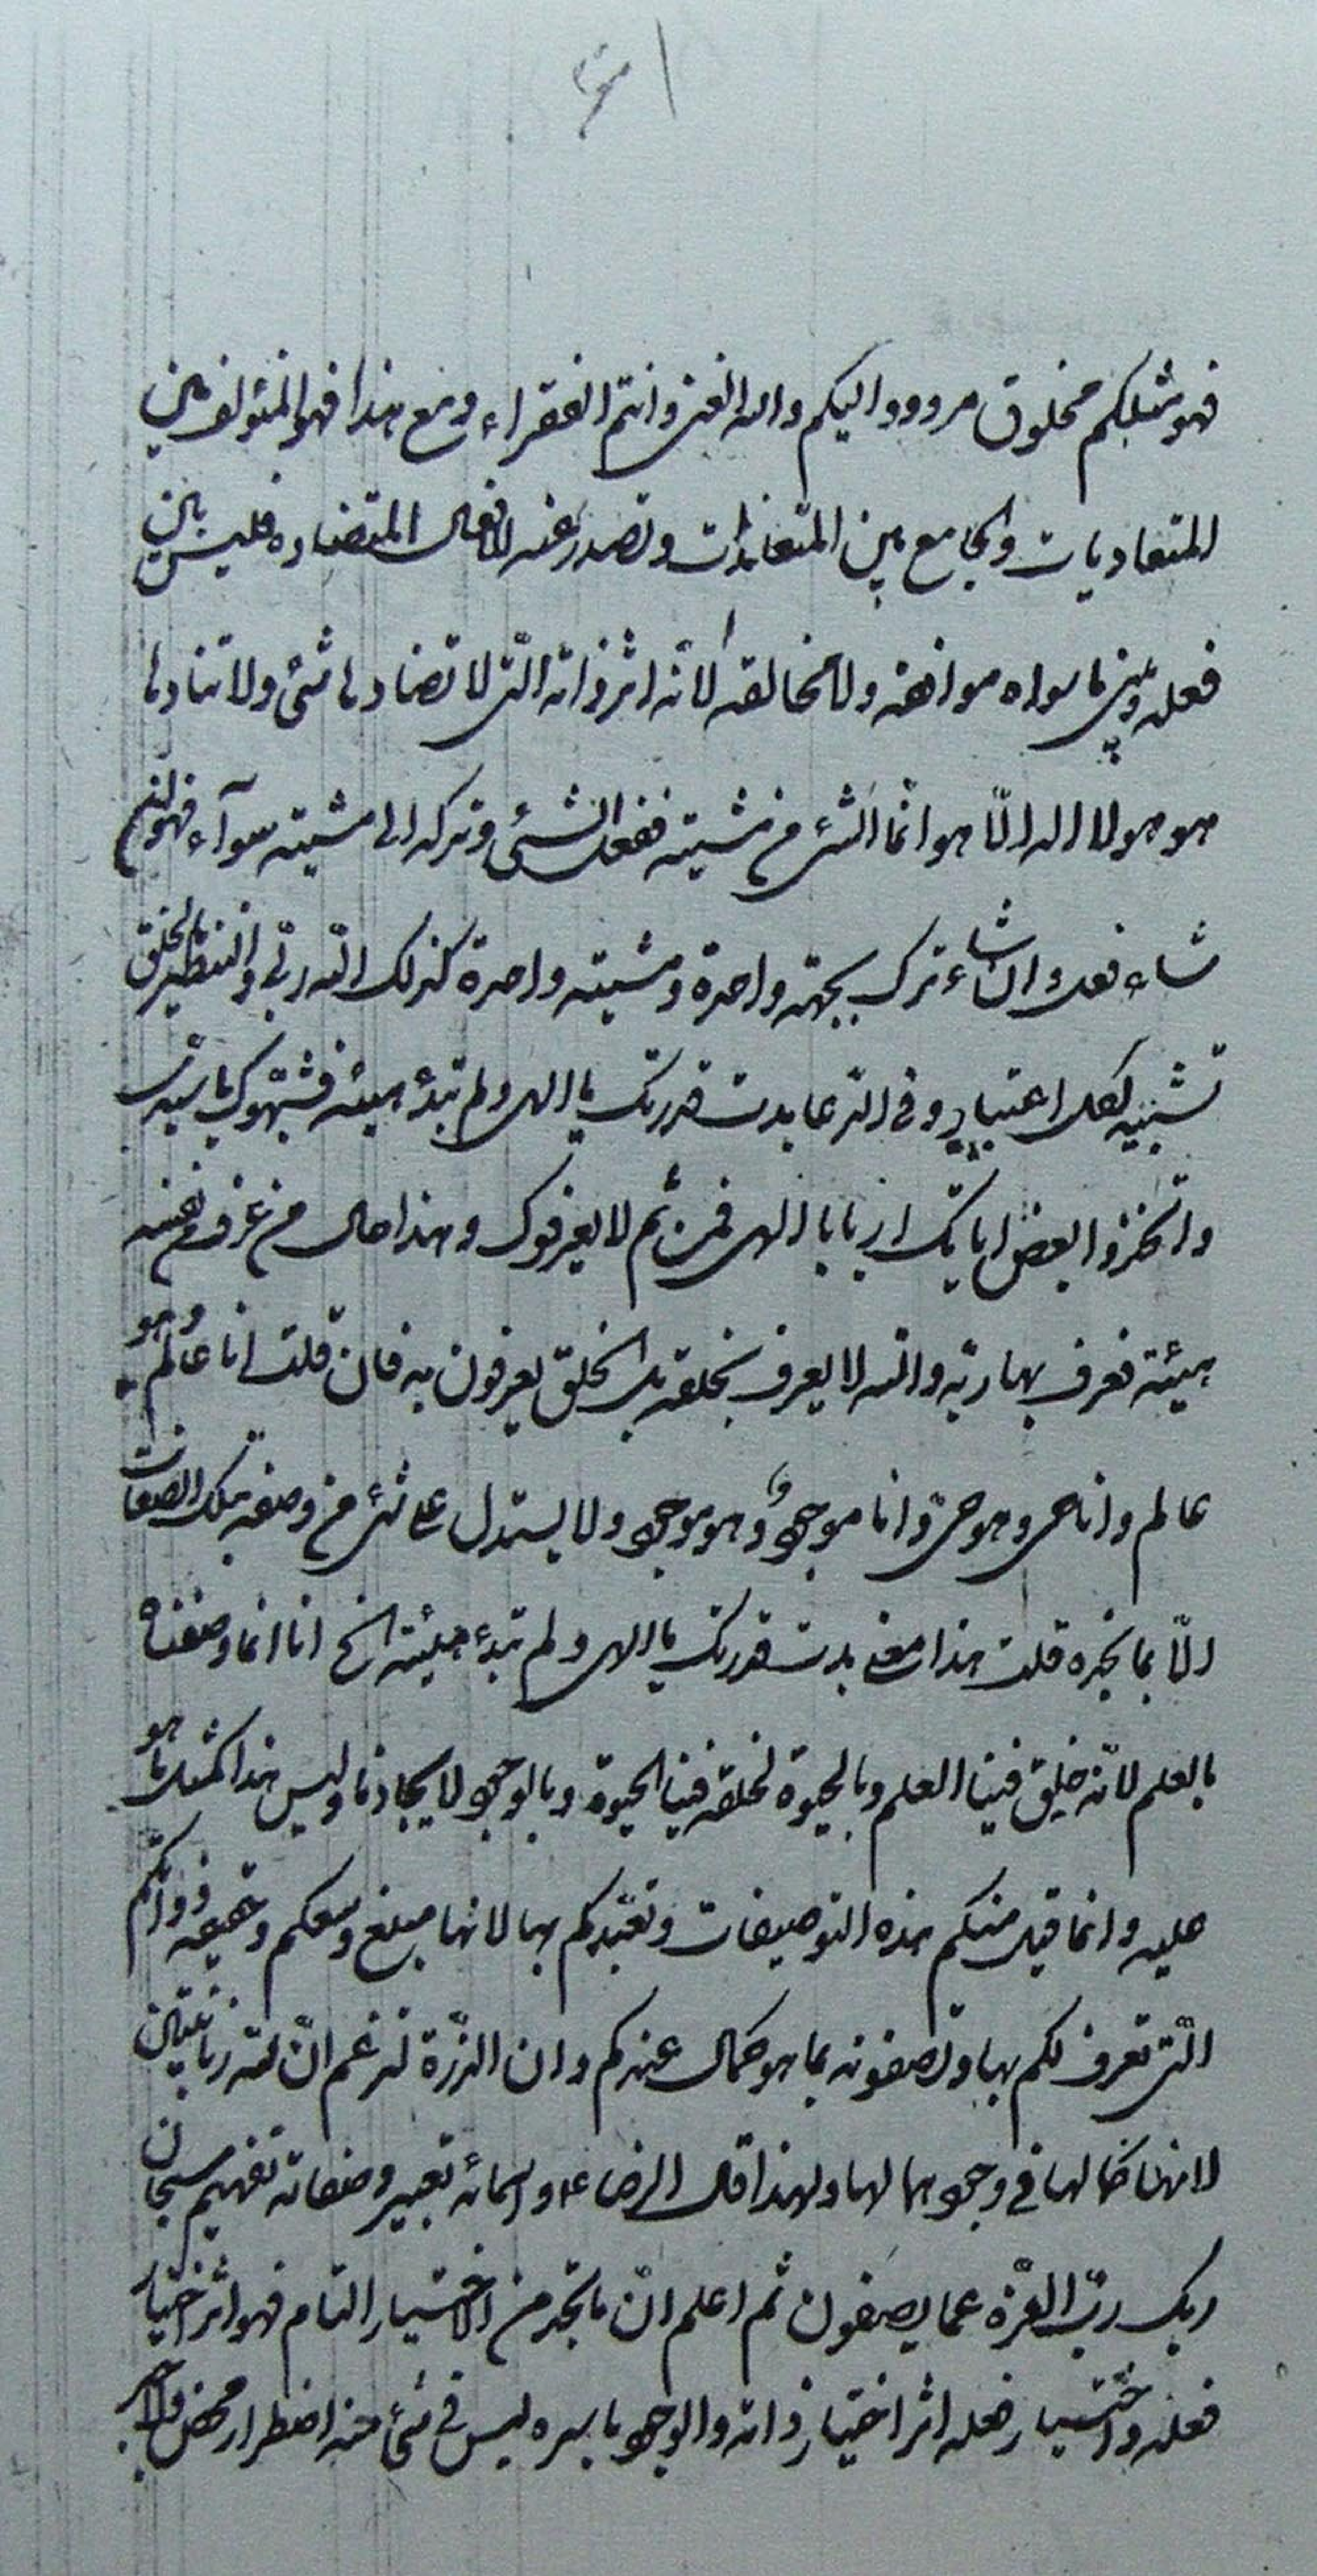 فهو مثلكم مخلوق مردود اليكم والله الغنى وانتم الفقراء ومع هذا فهو المؤلف بين
المتعاديات والجامع بين المتعاندات وتصدر عنه الافعال المتضاده فليس بين
فعله وبين ما سواه موافقه ولا مخالفه لانه اثر ذاته التى لا تضادها شئ ولا تنادها
هو هو لا اله الّا هو انما الشئ من مشيته ففعل الشئ وتركه الى مشيته سوآء فهو ان
شاء فعل وان شاء ترك بجهة واحدة ومشيته واحدة كذلك الله ربّى والتنظير بالخلق
تشبيه لعل اعتبار وفى الدعا بدت قدرتك يا الهى ولم تبدُ هيئة فشبّهوك يا سيدى
واتخذوا بعض اياتك اربابا يا الهى فمن ثم لا يعرفوك وهذا حال من عرف نفسه
هيئة فعرف بها ربّه والله لا يعرف بخلقه بل الخلق يعرفون به فان قلت انا عالم وهو
عالم وانا حى وهو حى وانا موجود وهو موجود ولا يستدل على شئ من وصفه بتلك الصفات
الّا بما نجده قلت هذا معنى بدت قدرتك يا الهى ولم تبدُ هيئة الخ انا انما وصفناه
بالعلم لانّه خلق فينا العلم وبالحيوة لخلقه فينا الحيوة وبالوجود لايجادنا وليس هذا كمثل ما هو
عليه وانما قبل منكم هذه التوصيفات وتعبّدكم بها لانها مبلغ وسعكم وحقيقه ذواتكم
الّتى تعرف لكم بها وتصفونه بما هو كمال عندكم وان الذرّة لتزعم انّ لله زبانيتين
لانهما كمالها فى وجودهما لها ولهذا قال الرضا ع واسمائه تعبير وصفاته تفهيم سبحان
ربك ربّ العزّة عما يصفون ثم اعلم انّ ما تجد من الاختيار التام فهو اثر اختيار
فعله واختيار فعله اثر اختيار ذاته والوجود باسره ليس فى شئ منه اضطرار محض ولا جبر